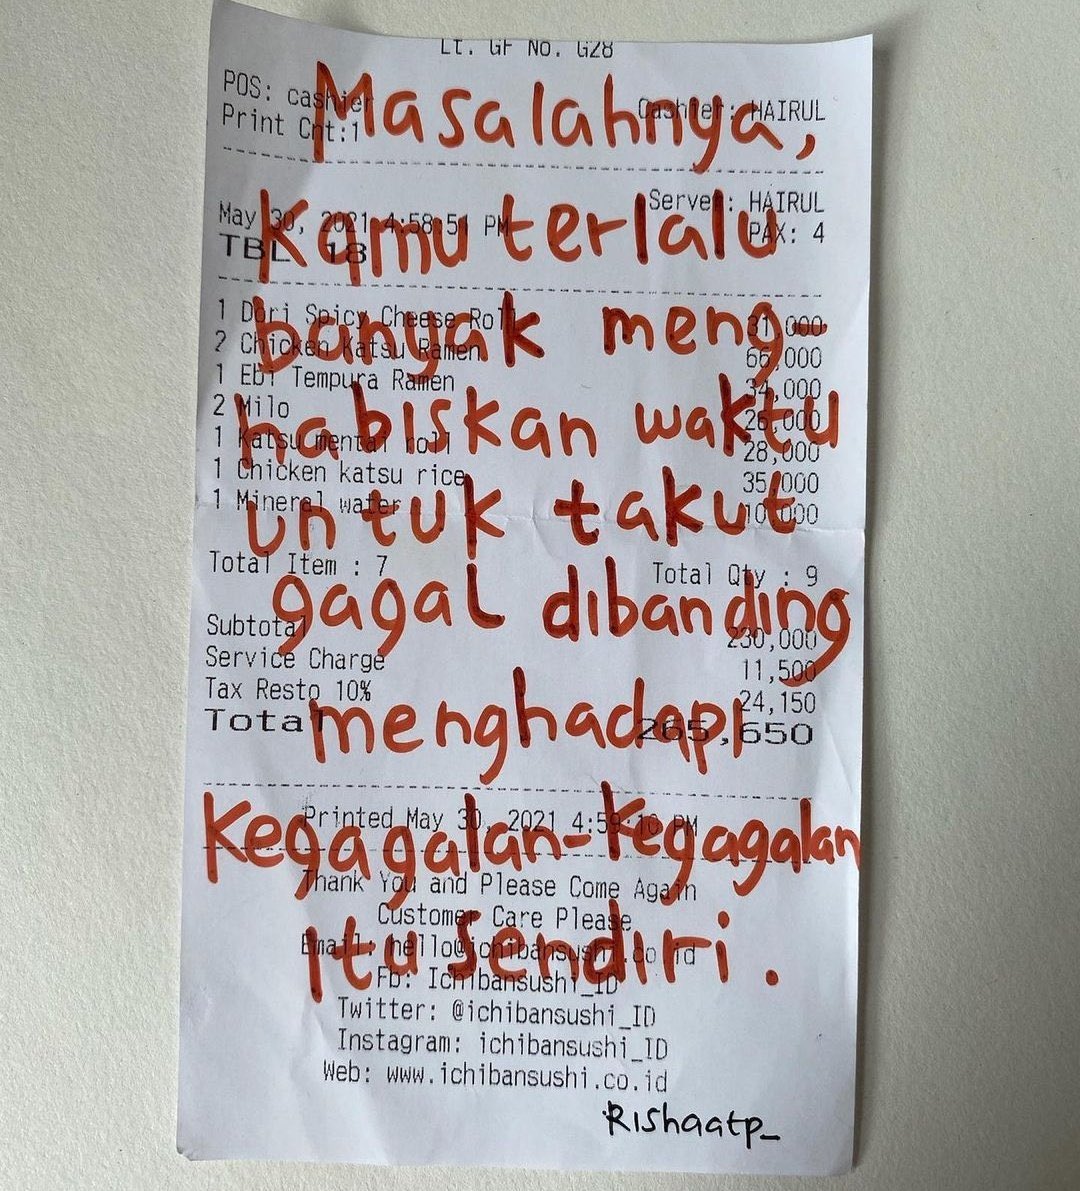 Lt. GF No. G28
POS: cashier Cashier: HAIRUL
Print Cnt:1
Server: HAIRUL
May 30, 2021 4:58:51 PM PAX: 4
TBL 18
1 Dori Spicy Cheese Roll 31,000
2 Chicken Katsu Ramen 66,000
1 Ebi Tempura Ramen 34,000
2 Milo 26,000
1 Katsu mentai roll 28,000
1 Chicken katsu rice 35,000
1 Mineral water 10,000
Total Item : 7 Total Qty : 9
Subtotal 230,000
Service Charge 11,500
Tax Resto 10% 24,150
Total 265,650
Printed May 30, 2021 4:59:10 PM
Thank You and Please Come Again
Customer Care Please
Email: hello@ichibansushi.co.id
Fb: Ichibansushi_ID
Twitter: @ichibansushi_ID
Instagram: ichibansushi_ID
Web: www.ichibansushi.co.id
Masalahnya,
kamu terlalu
banyak meng-
habiskan waktu
untuk takut
gagal dibanding
menghadapi
kegagalan-kegagalan
itu sendiri.
Rishaatp_